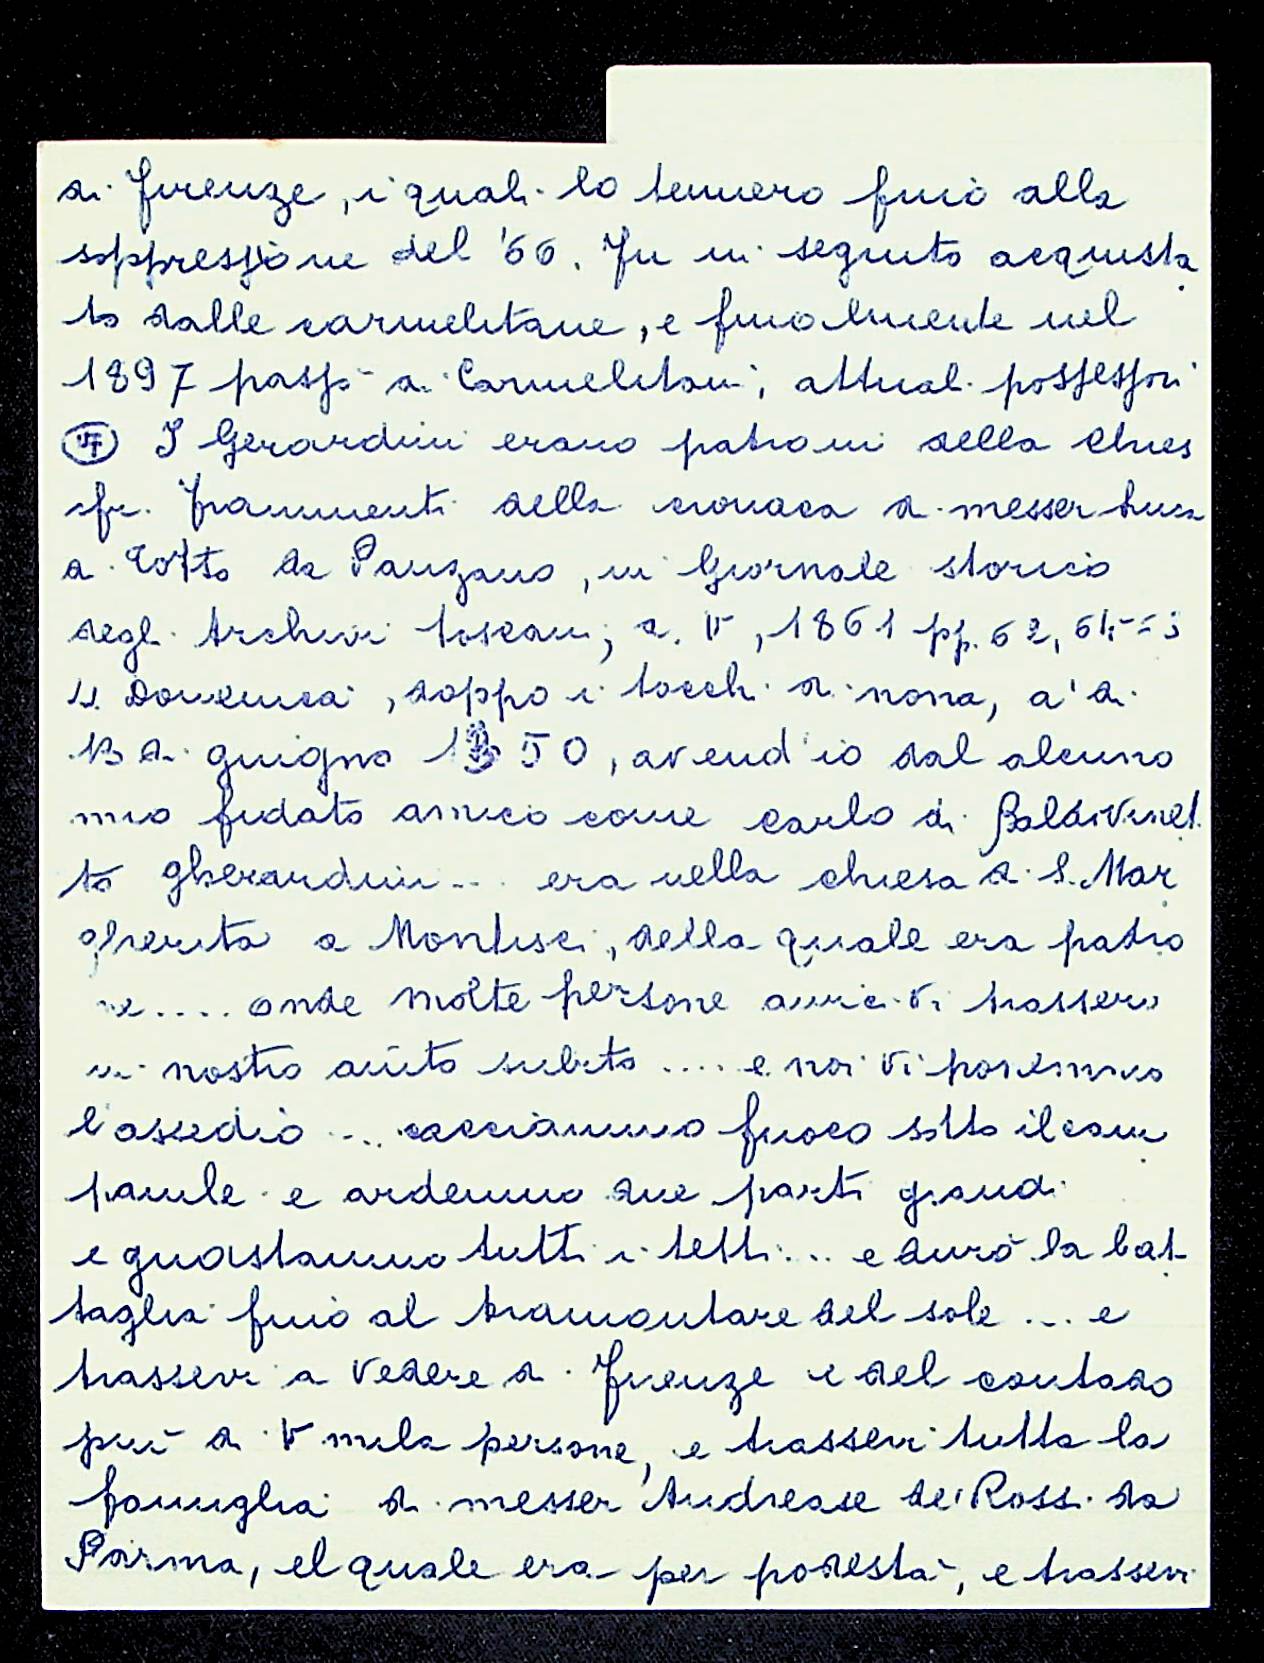 di Firenze, i quali lo tennero fino alla
soppressione del '66. Fu in seguito acquista
to dalle carmelitane, e finalmente nel
1897 passò ai Carmelitani, attuali possessori
I Gerardini erano patroni della Chies
cfr. frammenti della cronaca di messer Luca
di Totto da Panzano, in Giornale storico
degli Archivi toscani, a. V, 1861 pp. 62,
Domenica, doppo i tocchi di nona, a' dì
13 di giugno 1350, avend'io dal alcuno
mio fidato amico come Carlo di Baldovinet
to Gherardini... era nella chiesa di S. Mar
gherita a Montisci, della quale era patro
ne.... onde molte persone amici vi trassero
in nostro aiuto subito .... e noi vi ponemmo
l'assedio ... cacciammo fuoco sotto il cam
panile e ardemmo due parti grandi
e guastammo tutti i tetti... e durò la bat-
taglia fino al tramontare del sole ... e
trassevi a vedere di Firenze e del contado
più di V mila persone, e trassevi tutta la
famiglia di messer Andrease de' Rossi da
Parma, el quale era per podestà, e trassevi